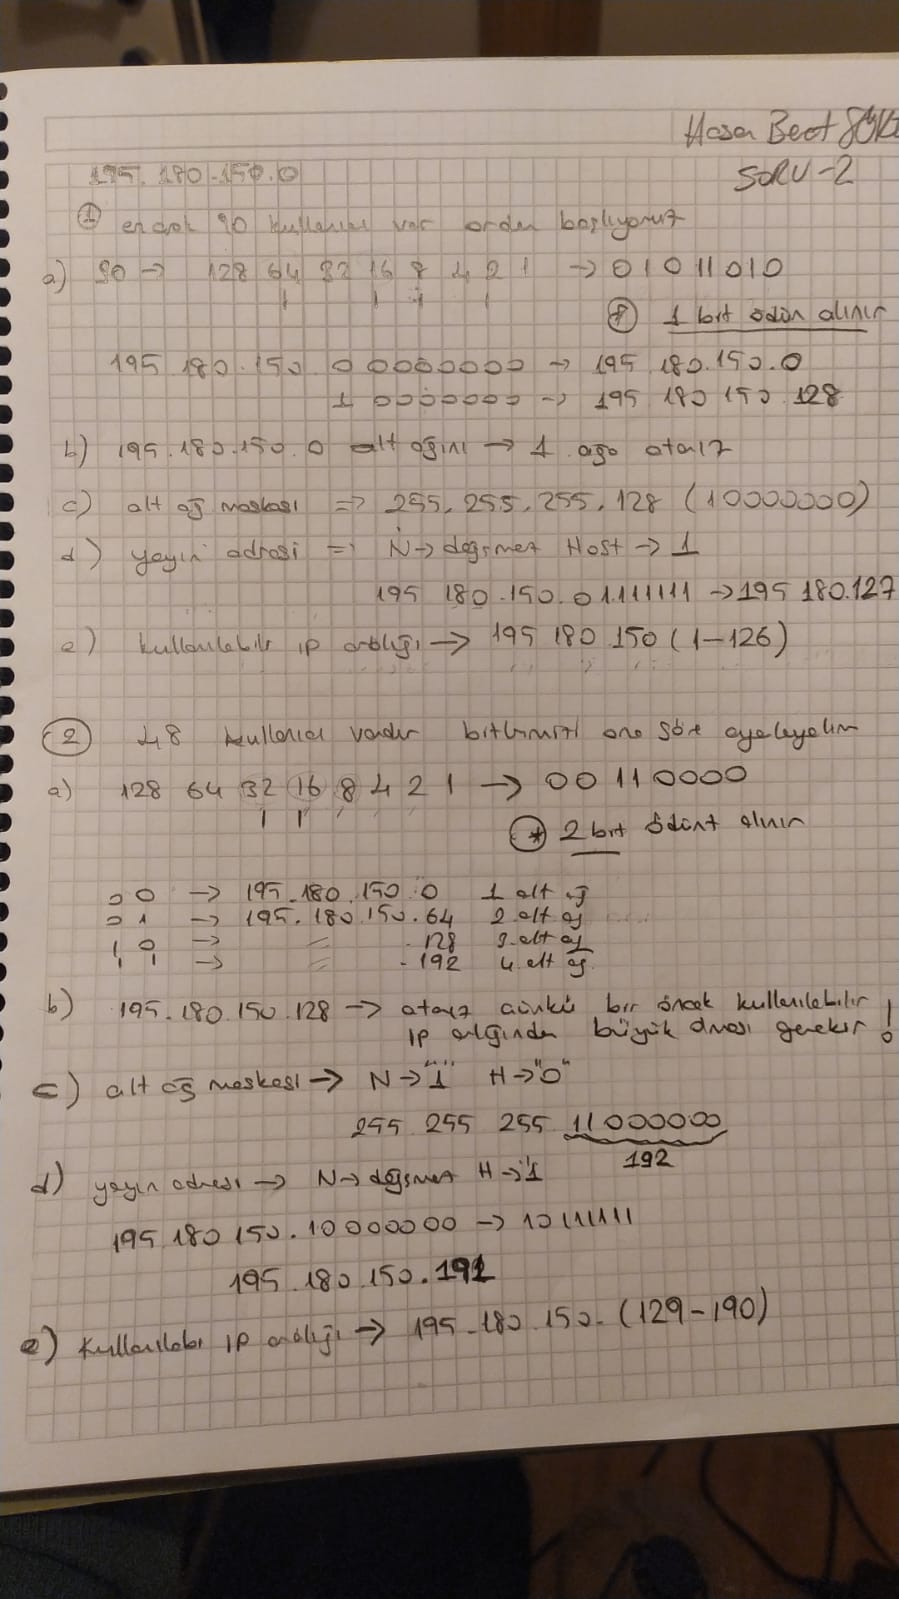 Hasan Beat
SORU-2
195.180.150.0
① en çok 90 kullanıcı var ordan başlıyoruz
a) 90 → 128 64 32 16 8 4 2 1 → 01011010
* 1 bit ödün alınır
195 180.150 0 0000000 → 195 180.150.0
1 0000000 → 195 180 150 128
b) 195.180.150.0 alt ağını → 1 ağa atarız
c) alt ağ maskası => 255.255.255.128 (10000000)
d) yayın adresi => N→değişmez Host → 1
195 180.150.01111111 → 195 180.127
e) kullanılabilir ip aralığı → 195 180 150 (1-126)
② 48 kullanıcı vardır bitlerimizi ona göre ayarlayalım
a) 128 64 32 16 8 4 2 1 → 00110000
* 2 bit ödünt alınır
00 → 195.180.150.0 1 alt ağ
01 → 195.180.150.64 2 alt ağ
10 → = .128 3.alt ağ
11 → = .192 4. alt ağ
b) 195.180.150.128 → atarız çünkü bir önceki kullanılabilir
ip aralığından büyük olması gerekir !
c) alt ağ maskesi → N→"1" H→"0"
255 255 255 11000000
192
d) yayın adresi → N→değişmez H→"1
195 180 150.10000000 → 10111111
195.180.150.191
e) kullanılabi ip aralığı → 195.180.150.(129-190)